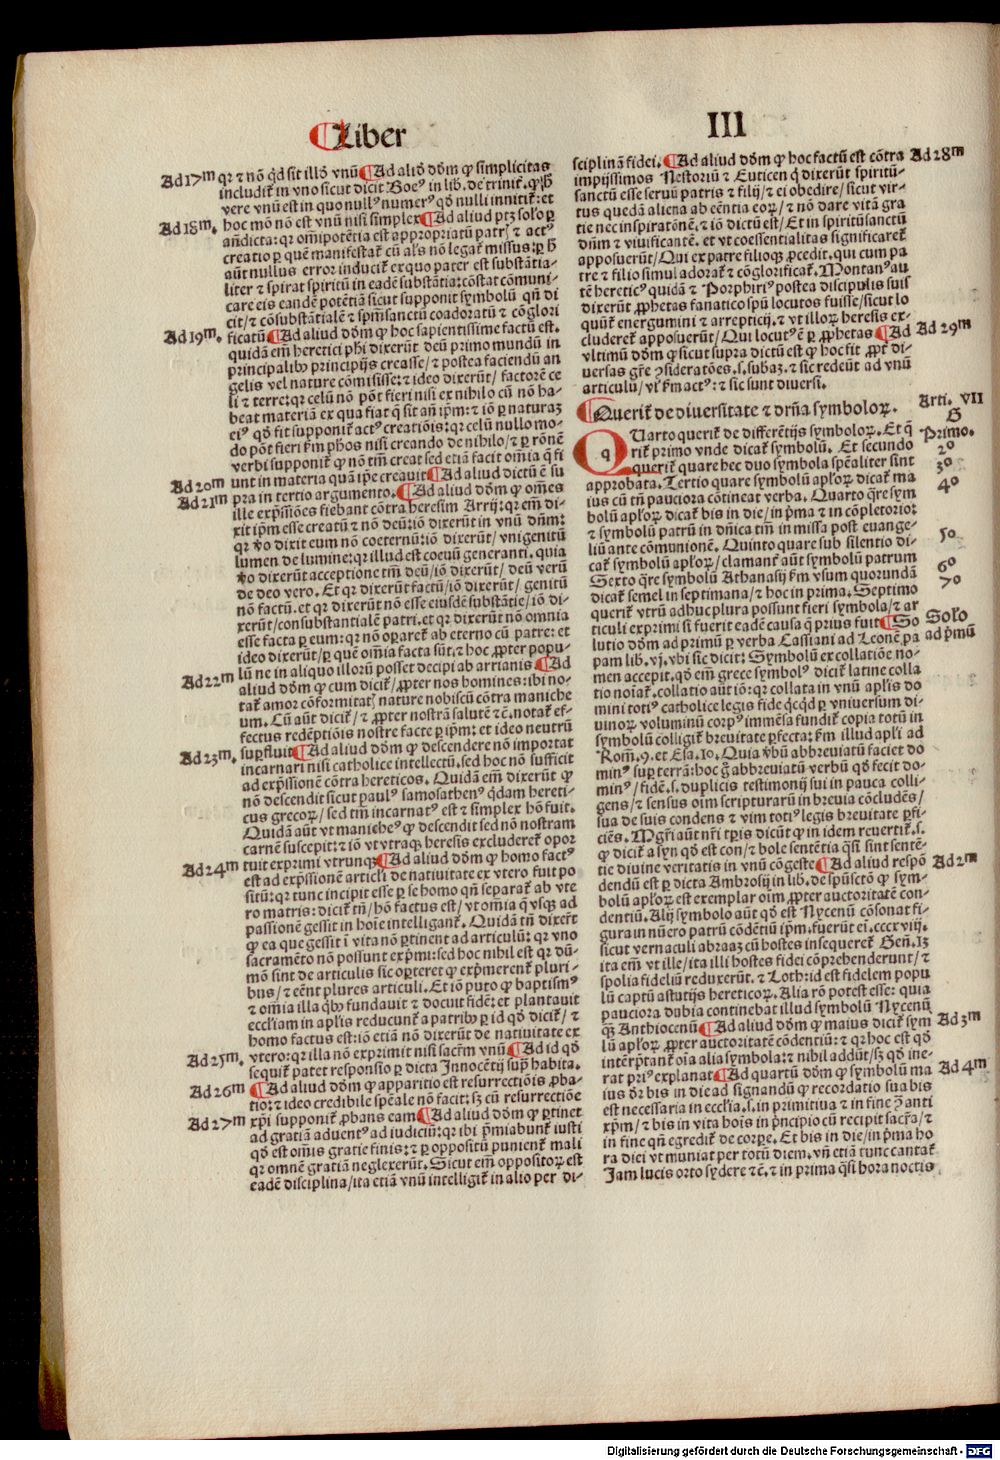 Liber
III
Ad 17m
qꝛ ⁊ nō qͥd sit illoꝝ vnū ¶ Ad aliō dōm ꝙ simplicitas
includit̃ in vno sicut dicit Boeꝰ in lib. de trinit̃. ꝙ
vere vnū est in quo nullꝰ numerꝰ qđ nulli innitit̃: et
Ad 18m.
hoc mō nō est vnū nisi simplex ¶ Ad aliud ptꝫ solo ꝑ
añdicta: qꝛ oīmpotētia est appropriatū patrꝭ ⁊ actꝰ
creatio ꝑ quē manifestat̃ cū al's nō legat̃ missus: ꝑ ħ
aūt nullus error inducit̃ ex quo pater est substātia-
liter ⁊ spirat spiritū in eadē substātia: cōstat cōmuni-
care eis eandē potētiā sicut supponit symbolū qñ di
cit/ ⁊ cōsubstātialē ⁊ spm̄sanctū coadoratū ⁊ cōglori
Ad 19m.
ficatū ¶ Ad aliud dōm ꝙ hoc sapientissime factū est.
quidā em̄ heretici phi dixerūt deū primo mundū in
principalibꝰ principijs creasse/ ⁊ postea faciendū an
gelis vel nature cōmisisse: ⁊ ideo dixerūt/ factorē ce
li ⁊ terre: qꝛ celū nō pōt fieri nisi ex nihilo cū nō ha-
beat materiā ex qua fiat q̄ sit añ ip̄m: ⁊ iō ꝑ naturaꝫ
eiꝰ qđ fit supponit̃ actꝰ creatiōis: qꝛ celū nullo mo-
do pōt fieri km̄ phos nisi creando de nihilo/ ⁊ ꝑ rōnē
verbi supponit̃ ꝙ nō tm̄ creat sed etiā facit oīa q̄ fi
Ad 20m
unt in materia quā ip̄e creauit ¶ Ad aliud dictū ē su
Ad 21m
pra in tertio argumento. ¶ Ad aliud dōm ꝙ om̄es
ille exp̄ssiōnes fiebant cōtra heresim Arrij: qꝛ em̄ di-
xit ip̄m esse creatū ⁊ nō deū: iō dixerūt in vnū dn̄m:
qꝛ v̄o dixit eum nō coeternū: iō dixerūt/ vnigenitū
lumen de lumine: qꝛ illud est coeuū generanti. quia
v̄o dixerūt acceptione tm̄ deū/ iō dixerūt/ deū verū
de deo vero. Et qꝛ dixerūt factū/ iō dixerūt/ genitū
nō factū. et qꝛ dixerūt nō esse eiusdē substātie/ iō di-
xerūt/ consubstantialē patri. et qꝛ dixerūt nō omnia
esse facta ꝑ eum: qꝛ nō oparet̃ ab eterno cū patre: et
ideo dixerūt/ ꝑ quē om̄ia facta sūt, ⁊ hoc ꝓpter popu-
lū ne in aliquo illorū posset decipi ab arrianis ¶ Ad
Ad 22m
aliud dōm ꝙ cum dicit̃/ ꝓpter nos homines: ibi no-
tat̃ amor cōformitatꝭ nature nobiscū cōtra maniche
um. Cū aūt dicit̃/ ⁊ ꝓpter nostrā salutē ⁊c̄. notat̃ ef-
fectus redēptiōis nostre facte ꝑ ip̄m: et ideo neutrū
Ad 23m.
sup̄fluit ¶ Ad aliud dōm ꝙ descendere nō importat
incarnari nisi catholice intellectū. sed hoc nō sufficit
ad exp̄ssionē cōtra hereticos. Quidā em̄ dixerūt ꝙ
nō descendit sicut paulꝰ samosathenꝰ qͥdam hereti-
cus grecoꝝ/ sed tm̄ incarnatꝰ est ⁊ simplex hō fuit.
Quidā aūt vt manicheꝰ ꝙ descendit sed nō nostram
carnē suscepit: ⁊ iō vt vtraqꝫ heresis excluderet̃ opor
Ad 24m
tuit exprimi vtrunqꝫ ¶ Ad aliud dōm ꝙ homo factꝰ
est ad exp̄ssionē articli de natiuitate ex vtero fuit po
sitū: qꝛ tunc incipit esse ꝑ se homo qñ separat̃ ab vte
ro matris: dicit̃ tn̄/ hō factus est/ vt om̄ia q̄ vsqꝫ ad
passionē gessit in hoīe intelligant̃. Quidā tn̄ dixer̄t
ꝙ ea que gessit ī vita nō ꝑtinent ad articulū: qꝛ vno
sacramēto nō possunt exp̄mi: sed hoc nihil est qꝛ dū-
mō sint de articulis sic oꝑteret ꝙ exp̄merent̃ pluri-
bus/ ⁊ eēnt plures articuli. Et iō puto ꝙ baptismꝰ
⁊ om̄ia illa qͥbꝰ fundauit ⁊ docuit fidē: et plantauit
eccliam in aplis reducunt̃ a patribꝰ ꝑ id qđ dicit̃/ ⁊
homo factus est: iō etiā nō dixerūt de natiuitate ex
Ad 25m.
vtero: qꝛ illa nō exprimit nisi sacr̄m vnū ¶ Ad id qđ
sequit̃ patet responsio ꝑ dicta Innocētij sup̄ habita.
Ad 26m
¶ Ad aliud dōm ꝙ apparitio est resurrectiōis ꝓba-
tio: ⁊ ideo credibile spēale nō facit: sꝫ cū resurrectiōe
Ad 27m
xp̄i supponit̃ ꝓbans eam ¶ Ad aliud dōm ꝙ ꝑtinet
ad gratiā aduentꝰ ad iudiciū: qꝛ ibi p̄miabunt̃ iusti
qđ est om̄is gratie finis: ⁊ ꝑ oppositū punient̃ mali
qꝛ omnē gratiā neglexerūt. Sicut em̄ oppositoꝝ est
eadē disciplina/ ita etiā vnū intelligit̃ in alio per di-
sciplinā fidei. ¶ Ad aliud dōm ꝙ hoc factū est cōtra
Ad 28m
impijssimos Nestoriū ⁊ Euticen q̇ dixerūt spiritū-
sanctū esse seruū patris ⁊ filij/ ⁊ ei obedire/ sicut vir-
tus quedā aliena ab eēntia eoꝝ/ ⁊ nō dare vitā gra
tie nec inspiratōnē. ⁊ iō dictū est/ Et in spiritūsanctū
dn̄m ⁊ viuificantē. et vt coessentialitas significaret̃
apposuerūt/ Qui ex patre filioqꝫ ꝓcedit. qui cum pa
tre ⁊ filio simul adorat̃ ⁊ cōglorificat̃. Montanꝰ au
tē hereticꝰ quidā ⁊ Porphiriꝰ postea discipulis suis
dixerūt ꝓphetas fanatico spū locutos fuisse/ sicut lo
quūt̃ energumini ⁊ arrepticij. ⁊ vt illoꝝ heresis ex-
cluderet̃ apposuerūt/ Qui locutꝰ ē ꝑ ꝓphetas ¶ Ad
Ad 29m
vltimū dōm ꝙ sicut supra dictū est ꝙ hoc fit ꝓpt̃ di-
uersas gr̃e ꝯsideratōes. s. subaꝫ. ⁊ sic redeūt ad vnū
articulū/ vl' km̄ actꝰ: ⁊ sic sunt diuersi.
Arti. VII
¶ Querit̃ de diuersitate ⁊ drn̄a symboloꝝ.
G
QUarto querit̃ de differētijs symboloꝝ. Et q̄
Primo.
rit̃ primo vnde dicat̃ symbolū. Et secundo
2o
querit̃ quare hec duo symbola spēaliter sint
3o
approbata. Tertio quare symbolū aploꝝ dicat̃ ma
4o
ius cū tn̄ pauciora cōtineat verba. Quarto q̄re sym
bolū aploꝝ dicat̃ bis in die/ in p̄ma ⁊ in cōpletorio:
⁊ symbolū patrū in dn̄ica tm̄ in missa post euange-
5o
liū ante cōmunionē. Quinto quare sub silentio di-
cat̃ symbolū aploꝝ/ clamant̃ aūt symbolū patrum
6o
Sexto q̄re symbolū Athanasij km̄ vsum quorundā
7o
dicat̃ semel in septimana/ ⁊ hoc in prima. Septimo
querit̃ vtrū adhuc plura possunt fieri symbola/ ⁊ ar
Solo
ticuli exprimi si fuerit eadē causa q̄ prius fuit ¶ So
ad p̄mū
lutio dōm ad primū ꝑ verba Cassiani ad Leonē pa
pam lib. vj. vbi sic dicit: Symbolū ex collatiōe no-
men accepit. qđ em̄ grece symbolꝰ dicit̃ latine colla
tio noīat̃. collatio aūt iō: qꝛ collata in vnū aplis do
mini totiꝰ catholice legis fide qͥcqͥd ꝑ vniuersum di-
uinoꝝ voluminū corpꝰ immēsa fundit̃ copia totū in
symbolū colligit̃ breuitate ꝑfecta: km̄ illud apli ad
Rom̄. 9. et Esa. 10. Quia v̄bū abbreuiatū faciet do
minꝰ sup̄ terrā: hoc g̊ abbreuiatū verbū qđ fecit do-
minꝰ/ fidē. s. duplicis testimonij sui in pauca colli-
gens/ ⁊ sensus oīm scripturarū in breuia cōcludēs/
sua de suis condens ⁊ vim totiꝰ legis breuitate ꝑfi-
ciēs. Mgr̄i aūt nr̄i tp̄is dicūt ꝙ in idem reuertit̃. s.
ꝙ dicit̃ a syn qđ est con/ ⁊ bole sentētia q̄si sint sentē-
tie diuine veritatis in vnū cōgeste ¶ Ad aliud respō
Ad 2m
dendū est ꝑ dicta Ambrosij in lib. de spūsctō ꝙ sym-
bolū aploꝝ est exemplar oīm ꝓpter auctoritatē con-
dentiū. Alij symbolo aūt qđ est Nycenū cōsonat fi-
gura in nūero patrū cōdētiū ip̄m. fuerūt ei. cccxviij.
sicut vernaculi abraaꝫ cū hostes insequeret̃ Gen̄. 13
ita em̄ vt ille/ ita illi hostes fidei cōprehenderunt/ ⁊
spolia fideliū reduxerūt. ⁊ Loth: id est fidelem popu
lū captū astutijs hereticoꝝ. Alia rō potest esse: quia
pauciora dubia continebat illud symbolū Nycenū
qꝫ Anthiocenū ¶ Ad aliud dōm ꝙ maius dicit̃ sym
Ad 3m
lū aploꝝ ꝓpter auctoritatē cōdentiū: ⁊ qꝛ hoc est qđ
interp̄tant̃ oīa alia symbola: ⁊ nihil addūt/ sꝫ qđ ine-
rat pri explanat ¶ Ad quartū dōm ꝙ symbolū ma
Ad 4m
ius dr̄ bis in die ad signandū ꝙ recordatio sua bis
est necessaria in ecclia. s. in primitiua ⁊ in fine ꝯ̄ anti
xp̄m/ ⁊ bis in vita hoīs in p̄ncipio cū recipit sacr̄a/ ⁊
in fine qñ egredit̃ de corꝑe. Et bis in die/ in p̄ma ho
ra diei vt muniat per totū diem. vn̄ etiā tunc cantat̃
Jam lucis orto sydere ⁊c̄. ⁊ in prima q̄si hora noctis
Digitalisierung gefördert durch die Deutsche Forschungsgemeinschaft - DFG